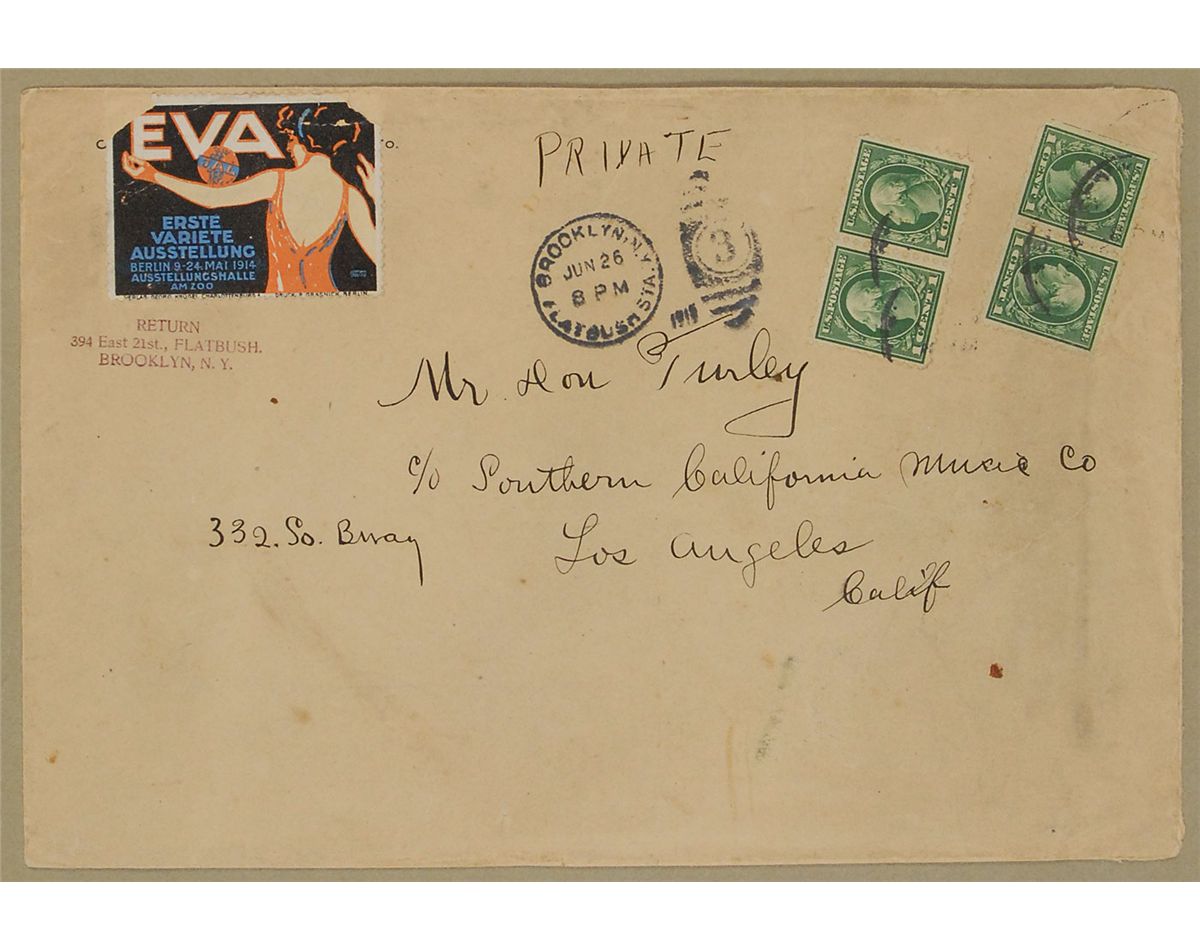 EVA
C
O.
ERSTE
VARIETE
AUSSTELLUNG
BERLIN 9-24. MAI 1914
AUSSTELLUNGSHALLE
AM ZOO
RETURN
394 East 21st., FLATBUSH.
BROOKLYN, N. Y.
PRIVATE
BROOKLYN, N.Y.
JUN 26
8 PM
FLATBUSH STA.
3
U.S. POSTAGE
1 CENT 1
U.S. POSTAGE
1 CENT 1
U.S. POSTAGE
1 CENT 1
U.S. POSTAGE
1 CENT 1
Mr. Don Turley
c/o Southern California Music Co
332. So. Bway
Los Angeles
Calif